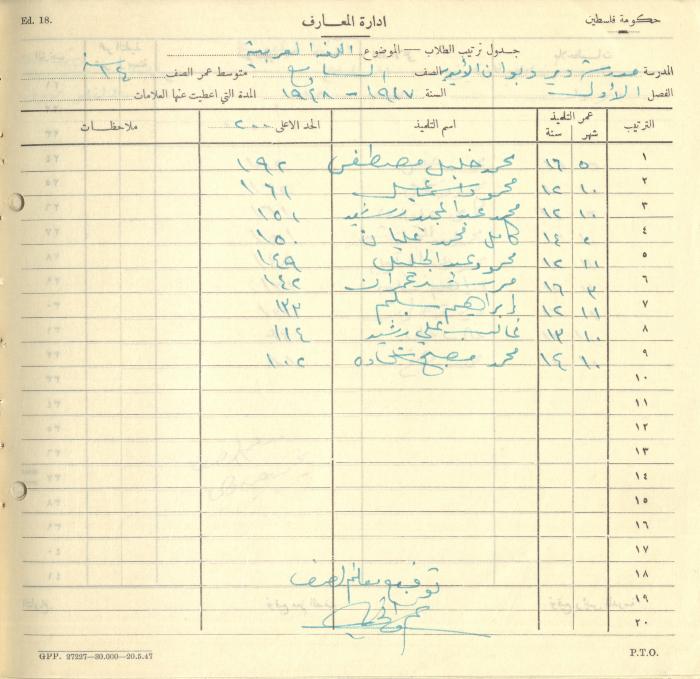 Ed. 18.
ادارة المعارف
حكومة فلسطين
جدول ترتيب الطلاب — الموضوع اللغة العربية
المدرسة مدرسة دير ديوان الأميرية الصف السابع متوسط عمر الصف ١٤ سنة
الفصل الأول السنة ١٩٤٧ - ١٩٤٨ المدة التي اعطيت عنها العلامات
الترتيب عمر التلميذ شهر سنة اسم التلميذ الحد الاعلى ٢٠٠ ملاحظات
١ ٥ ١٦ محمد خليل مصطفى ١٩٢
٢ ١٠ ١٢ محمود اسماعيل ١٦١
٣ ١٠ ١٢ محمد عبد المجيد رشيد ١٥١
٤ ١٤ كامل محمد عليان ١٥٠
٥ ١١ ١٢ محمود عبد الجليل ١٤٩
٦ ٣ ١٦ مرشد عمران ١٤٢
٧ ١١ ١٢ إبراهيم سليم ١٣٣
٨ ١٠ ١٣ غالب علي رشيد ١١٤
٩ ١٠ ١٤ محمد مصبح شحاده ١٠٢
١٠
١١
١٢
١٣
١٤
١٥
١٦
١٧
١٨ توقيع معلم الصف
١٩
٢٠
GPP. 27227—30.000—20.5.47
P.T.O.